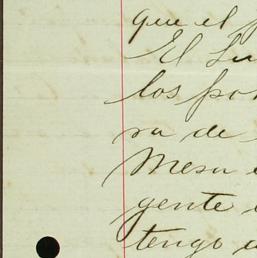 que el
El Lu
los po
ra de
Mesa
gente
tengo